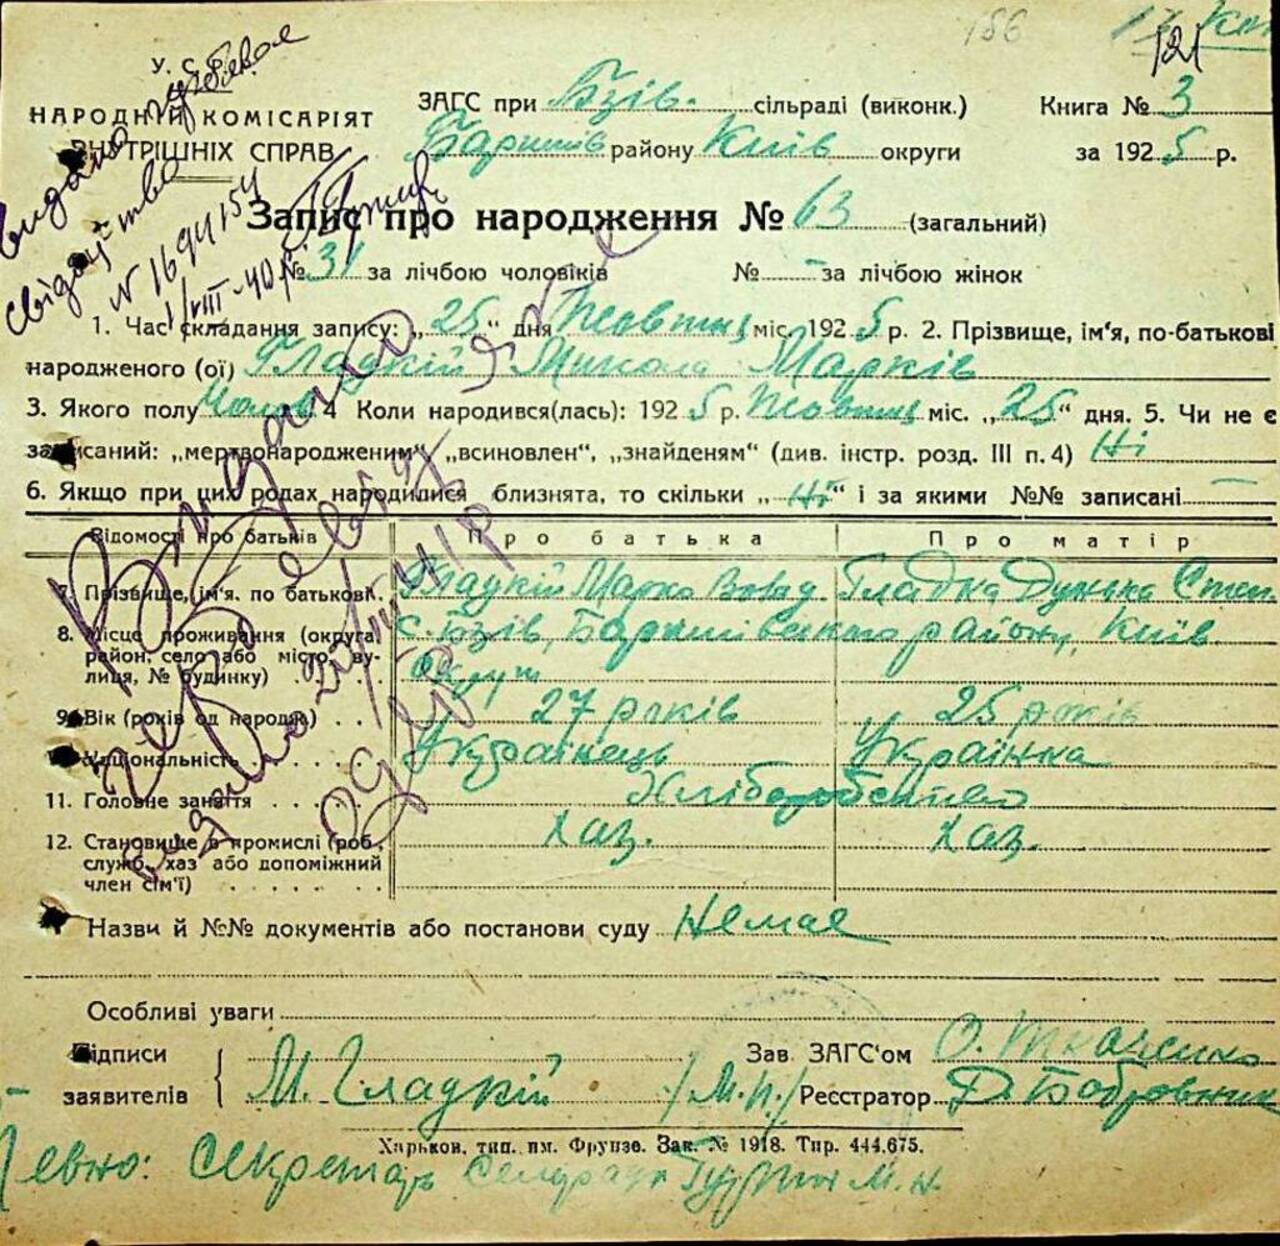 186
121
У. С. Р. Р.
НАРОДНІЙ КОМІСАРІЯТ
ВНУТРІШНІХ СПРАВ
ЗАГС при Бзів. сільраді (виконк.) Книга № 3
Баришів району Київ округи за 1925 р.
Запис про народження № 63 (загальний)
№ 31 за лічбою чоловіків № – за лічбою жінок
1. Час складання запису: „25“ дня Жовтня міс. 1925 р. 2. Прізвище, ім'я, по-батькові
народженого (ої) Гладкій Микола Марків
3. Якого полу Чолов. 4 Коли народився(лась): 1925 р. Жовтня міс. „25“ дня. 5. Чи не є
записаний: „мертвонародженим“, „всиновлен“, „знайденям“ (див. інстр. розд. III п. 4) Ні
6. Якщо при цих родах народилися близнята, то скільки „Ні“ і за якими №№ записані –
Відомості про батьків Про батька Про матір
7. Прізвище, ім'я. по батькові. Гладкій Марко Гладка Степ.
8. Місце проживання (округа с. Бзів, Баришівського району, Київ
район, село або місто, ву- округ
лиця, № будинку)
9. Вік (років од народж.) 27 років 25 років
10. Національність Українець Українка
11. Головне заняття Хліборобство
12. Становище в промислі (роб., Хаз. Хаз.
служб., хаз або допоміжний
член сім'ї)
Назви й №№ документів або постанови суду Немае
Особливі уваги
Підписи Зав ЗАГС'ом О. Ткаченко
заявителів М. Гладкій /М.П./ Реєстратор Д. Бобровник
Харьков, тип. им. Фрунзе. Зак. № 1918. Тир. 444.675.
Певно: Секретарь М. Н.
Видано
свідоцтво
N 1694154
1/VIII-40р.
Видано